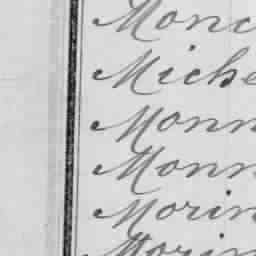 Monc
Miche
Monn
Monn
Morin
Morin